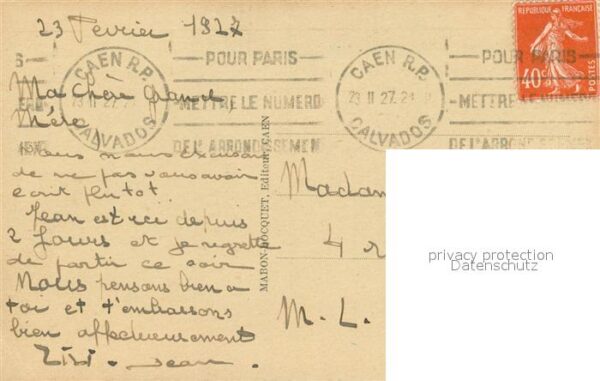 23 Fevrier 1927
POUR PARIS
METTRE LE NUMERO
DE L'ARRONDISSEMENT
CAEN R.P.
23 II 27
CALVADOS
POUR PARIS
METTRE LE NUMERO
DE L'ARRONDISSEMEN
CAEN R.P.
23 II 27. 21
CALVADOS
REPUBLIQUE FRANÇAISE
40c
POSTES
Ma Chère Grand
Mère
Nous nous excusons
de ne pas vous avoir
écrit plutot.
Jean est ici depuis
2 Jours et je regrette
de partir ce soir
Nous pensons bien a
toi et t'embrassons
bien affectueusement
Zizi. Jean.
MABON-DOCQUET, Editeur, CAEN
Madam
4 r
M. L.
privacy protection
Datenschutz